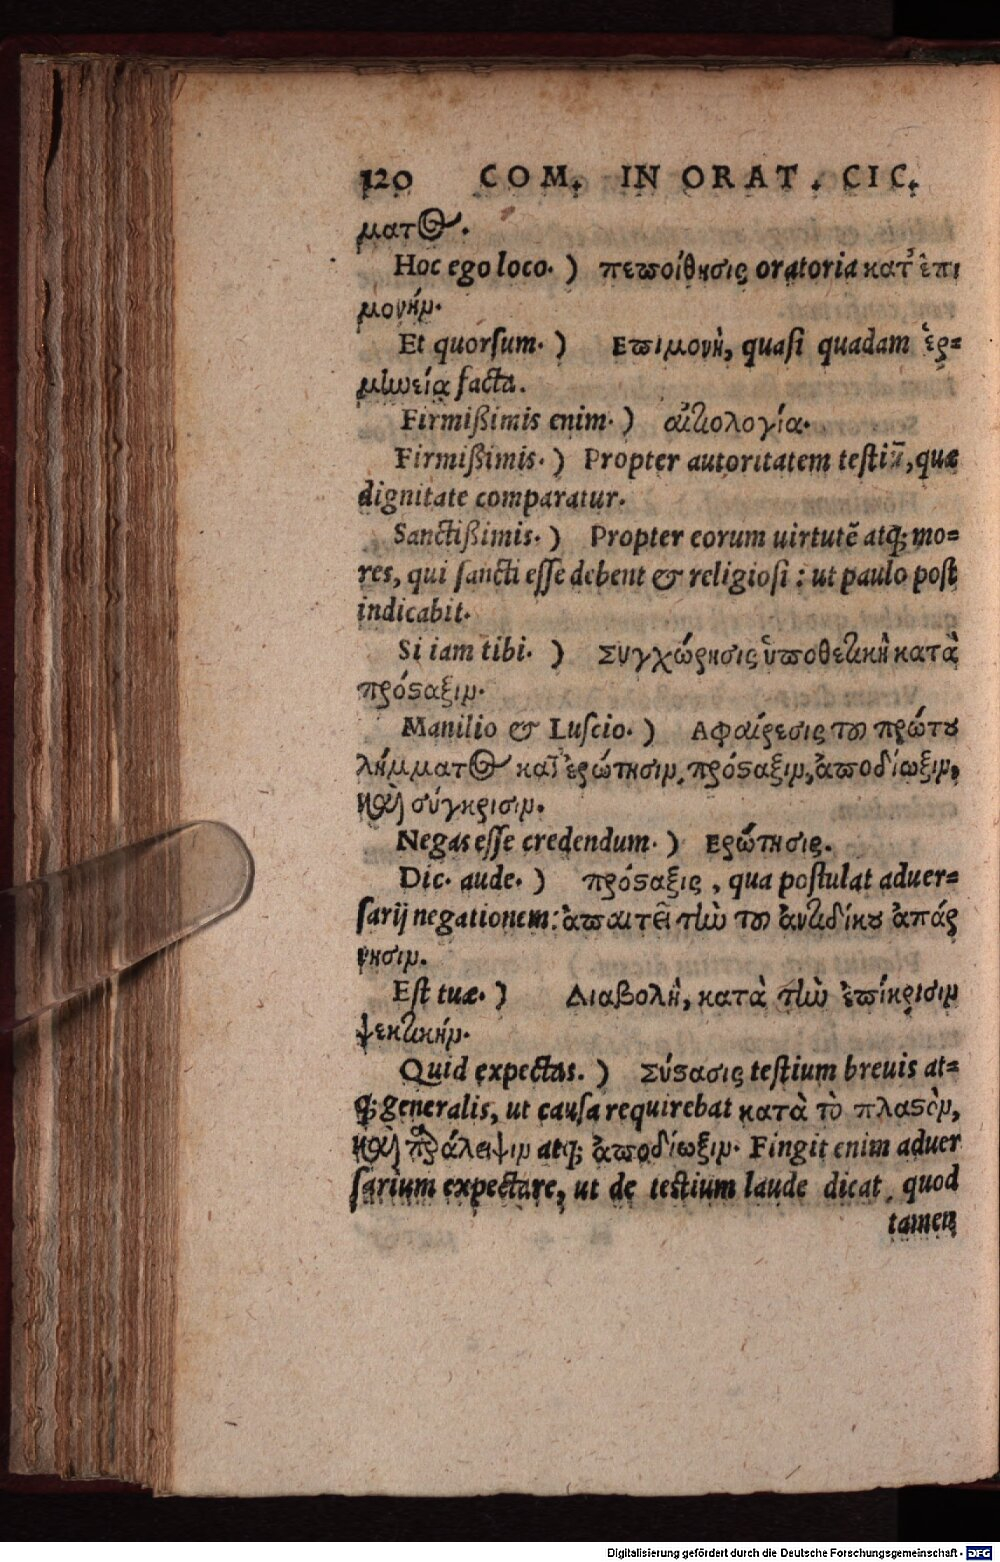 120 COM. IN ORAT. CIC.
ματος.
Hoc ego loco. ) πεποίθησις oratoria κατ' ἐπι
μονήν.
Et quorſum. ) Επιμονὴ, quaſi quadam ἑρ=
μηνείᾳ facta.
Firmißimis enim. ) αἰτιολογία.
Firmißimis. ) Propter autoritatem teſtiū, quæ
dignitate comparatur.
Sanctißimis. ) Propter eorum uirtutē atq; mo=
res, qui ſancti eſſe debent & religioſi: ut paulo poſt
indicabit.
Si iam tibi. ) Συγχώρησις ὑποθετικὴ κατὰ
πρόϛαξιν.
Manilio & Luſcio. ) Αφαίρεσις τοῦ πρώτου
λήμματος κατ' ἐρώτησιν, πρόϛαξιν, ἀποδίωξιν,
καὶ σύγκρισιν.
Negas eſſe credendum. ) Ερώτησις.
Dic. aude. ) πρόϛαξις, qua poſtulat aduer=
ſarij negationem: ἀπαιτεῖ τὴν τοῦ ἀντιδίκου ἀπάρ
νησιν.
Eſt tuæ. ) Διαβολὴ, κατὰ τὴν ἐπίκρισιν
ψεκτικήν.
Quid expectas. ) Σύϛασις teſtium breuis at=
q; generalis, ut cauſa requirebat κατὰ τὸ πλαϛὸν,
καὶ πρόλειψιν atq; ἀποδίωξιν. Fingit enim aduer
ſarium expectare, ut de teſtium laude dicat, quod
tamen
Digitalisierung gefördert durch die Deutsche Forschungsgemeinschaft - DFG